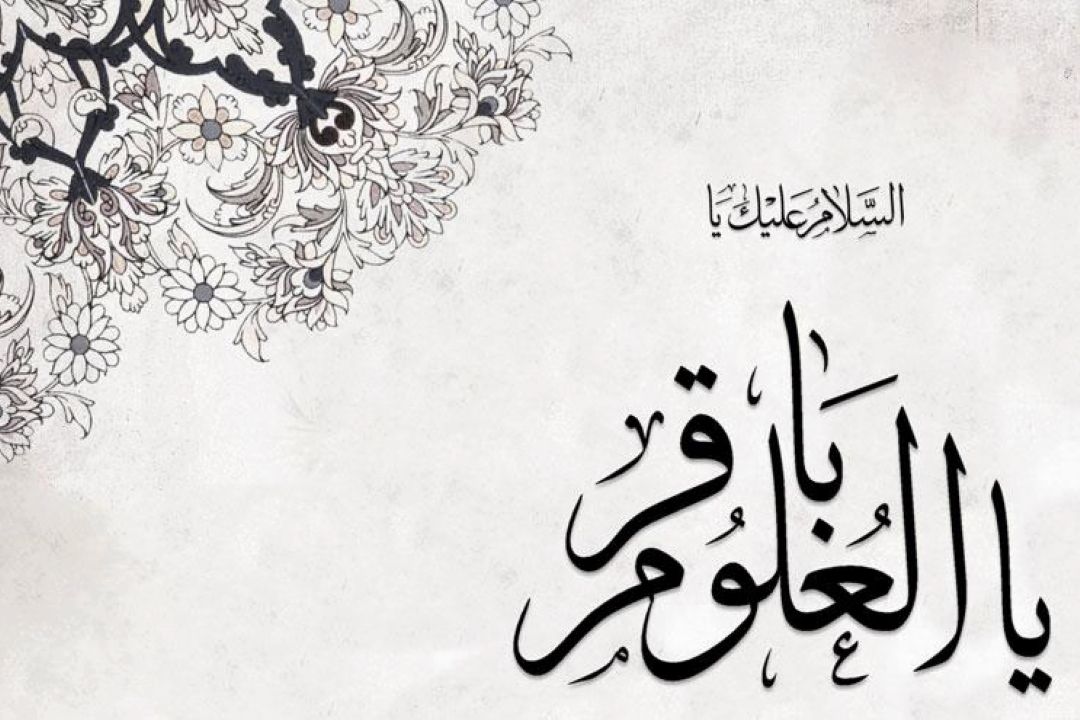 السَّلامُ عَلیْكَ یَا
یا باقر العُلُوم